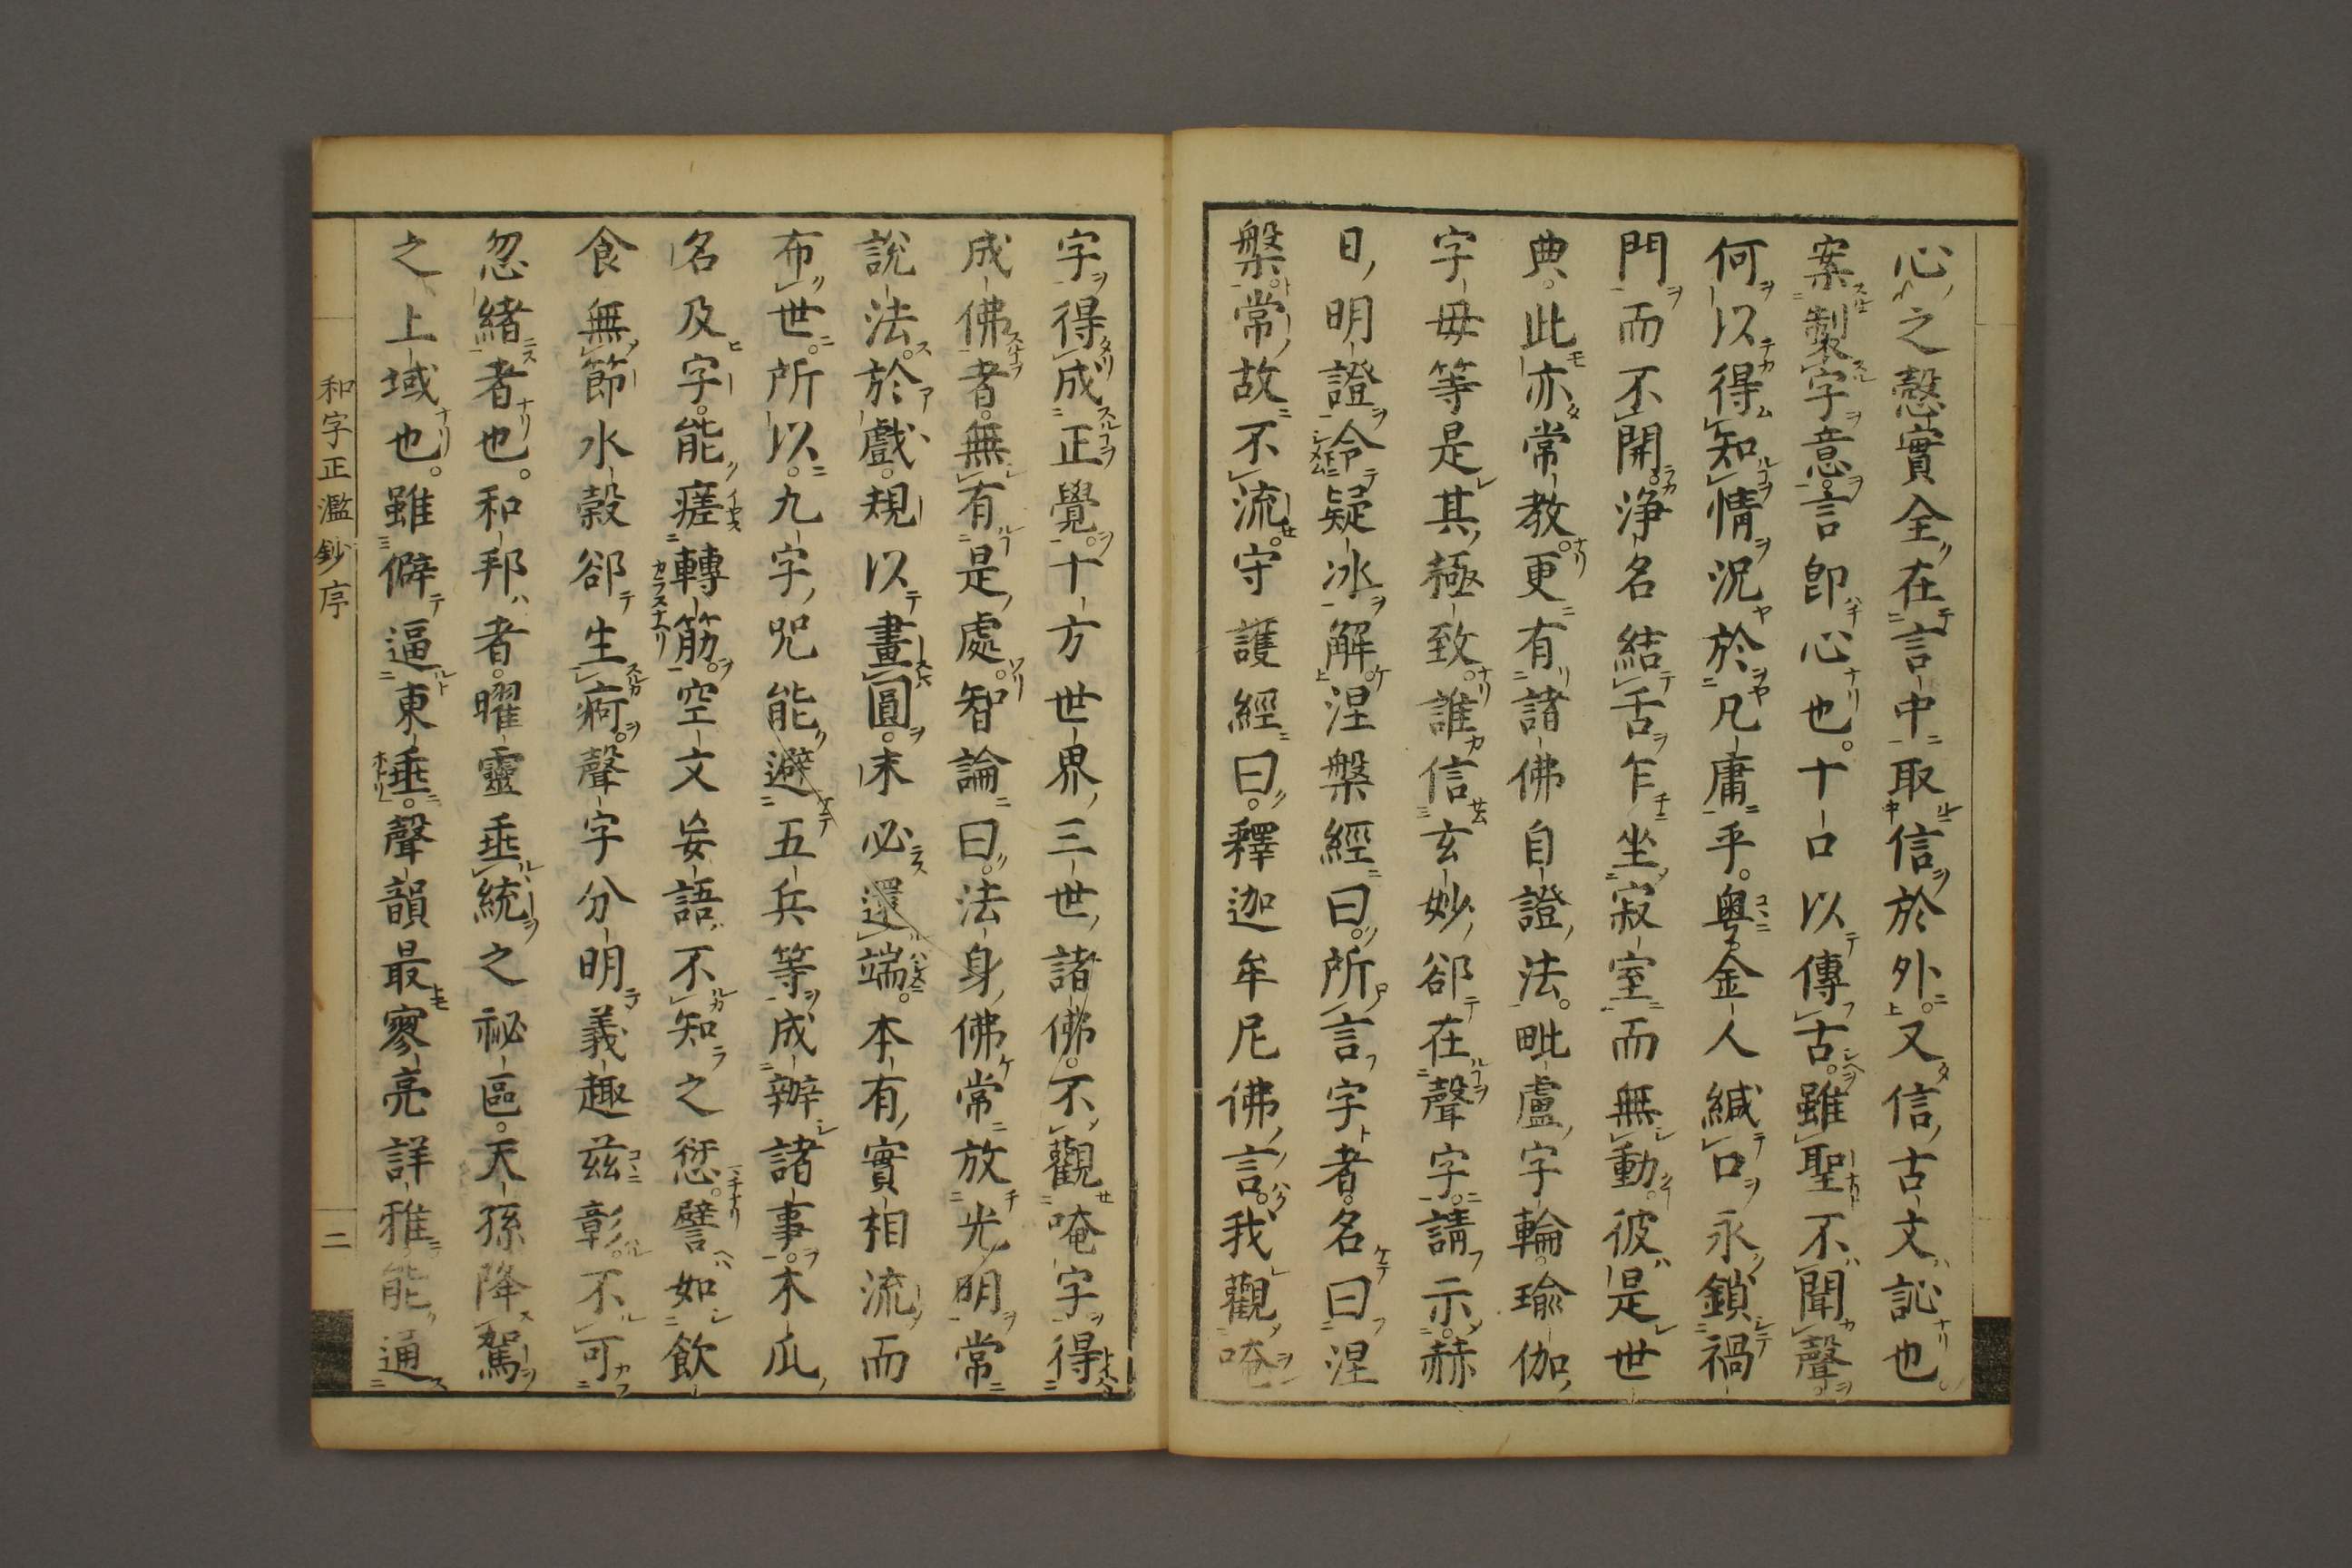 心之愨實全在言中取信於外又信古文訫也
案製字意言卽心也十口以傳古雖聖不聞聲
何以得知情況於凡庸乎粤金人緘口永鎖禍
門而不開淨名結舌乍坐寂室而無動彼是世
典此亦常教更有諸佛自證法毗盧字輪瑜伽
字母等是其極致誰信玄妙郤在聲字請示赫
日明證令疑冰解涅槃經曰所言字者名曰涅
槃常故不流守護經曰釋迦牟尼佛言我觀唵
字得成正覺十方世界三世諸佛不觀唵字得
成佛者無有是處智論曰法身佛常放光明常
說法於戲規以畫圓末必還端本有實相流而
布世所以九字咒能避五兵等成辦諸事木瓜
名及字能瘥轉筋空文妄語不知之愆譬如飲
食無節水穀郤生痾聲字分明義趣茲彰不可
忽緒者也和邦者曜靈垂統之祕區天孫降駕
之上域也雖僻逼東垂聲韻最寥亮詳雅能通
和字正濫鈔序
二